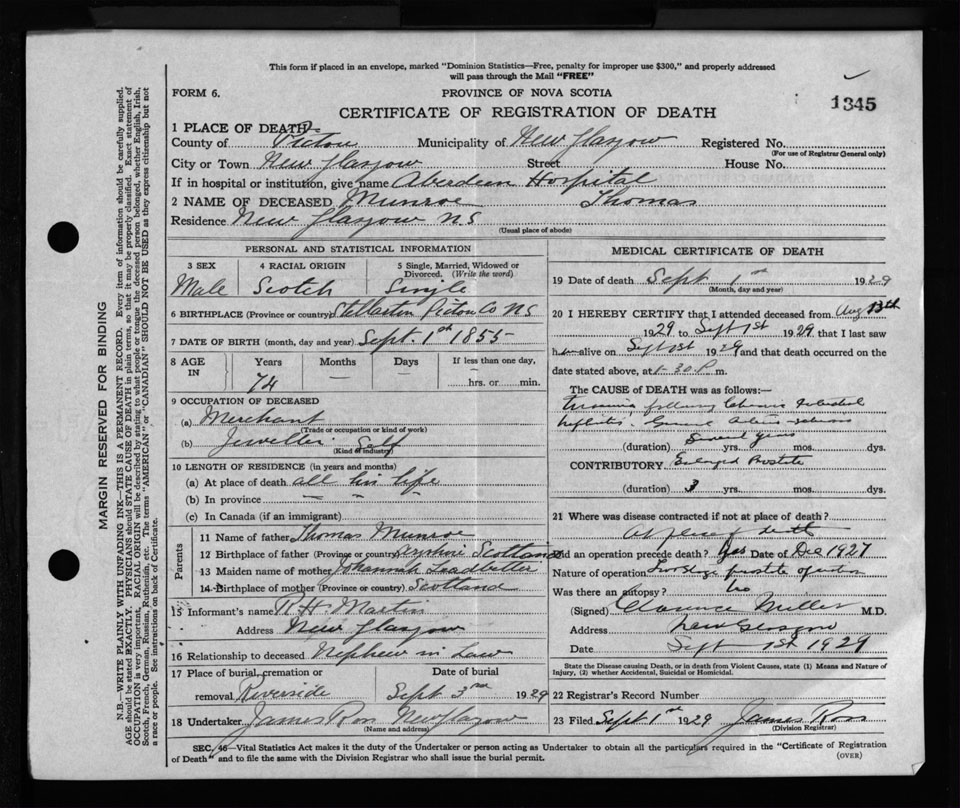 This form if placed in an envelope, marked "Dominion Statistics—Free, penalty for improper use $300," and properly addressed
will pass through the Mail "FREE"
FORM 6. PROVINCE OF NOVA SCOTIA
1345
CERTIFICATE OF REGISTRATION OF DEATH
1 PLACE OF DEATH—
County of Pictou Municipality of New Glasgow Registered No.
(For use of Registrar General only)
City or Town New Glasgow Street House No.
If in hospital or institution, give name Aberdeen Hospital
2 NAME OF DECEASED Munroe Thomas
Residence New Glasgow NS
(Usual place of abode)
PERSONAL AND STATISTICAL INFORMATION
3 SEX 4 RACIAL ORIGIN 5 Single, Married, Widowed or
Divorced. (Write the word)
Male Scotch Single
6 BIRTHPLACE (Province or country) Stellarton Pictou Co NS
7 DATE OF BIRTH (month, day and year) Sept. 1st 1855
8 AGE IN Years Months Days If less than one day,
74 — — hrs. or min.
9 OCCUPATION OF DECEASED
(a) Merchant
(Trade or occupation or kind of work)
(b) Jeweller Self
(Kind of industry)
10 LENGTH OF RESIDENCE (in years and months)
(a) At place of death all his life
(b) In province — — —
(c) In Canada (if an immigrant)
Parents
11 Name of father Thomas Munroe
12 Birthplace of father (Province or country) Scotland
13 Maiden name of mother Johannah Leadbetter
14 Birthplace of mother (Province or country) Scotland
15 Informant's name H. Martin
Address New Glasgow
16 Relationship to deceased Nephew in Law
17 Place of burial, cremation or Date of burial
removal Riverside Sept 3rd 1929
18 Undertaker James Ross New Glasgow
(Name and address)
MEDICAL CERTIFICATE OF DEATH
19 Date of death Sept 1st 1929
(Month, day and year)
20 I HEREBY CERTIFY that I attended deceased from Aug 13th
1929 to Sept 1st 1929 that I last saw
him alive on Sept 1st 1929 and that death occurred on the
date stated above, at 1-30 P. m.
The CAUSE of DEATH was as follows:—
following Interstitial
Nephritis. General
(duration) Several years yrs. mos. dys.
CONTRIBUTORY Enlarged Prostate
(duration) 3 yrs. mos. dys.
21 Where was disease contracted if not at place of death?
At place of death
Did an operation precede death? Yes Date of Dec 1927
Nature of operation Two stage prostate operation
Was there an autopsy? No
(Signed) Clarence Miller M.D.
Address New Glasgow
Date Sept 1st 1929
State the Disease causing Death, or in death from Violent Causes, state (1) Means and Nature of
Injury, (2) whether Accidental, Suicidal or Homicidal.
22 Registrar's Record Number
23 Filed Sept 1st 1929 James Ross
(Division Registrar)
SEC. 46—Vital Statistics Act makes it the duty of the Undertaker or person acting as Undertaker to obtain all the particulars required in the "Certificate of Registration
of Death" and to file the same with the Division Registrar who shall issue the burial permit.
(OVER)
MARGIN RESERVED FOR BINDING
N.B.—WRITE PLAINLY WITH UNFADING INK—THIS IS A PERMANENT RECORD. Every item of information should be carefully supplied.
AGE should be stated EXACTLY. PHYSICIANS should STATE CAUSE OF DEATH in plain terms, so that it may be properly classified. Exact statement of
OCCUPATION is very important. RACIAL ORIGIN will be described by stating to what people or tongue the deceased person belonged, whether English, Irish,
Scotch, French, German, Russian, Ruthenian, etc. The terms "AMERICAN" or "CANADIAN" SHOULD NOT BE USED as they express citizenship but not
a race or people. See instructions on back of Certificate.